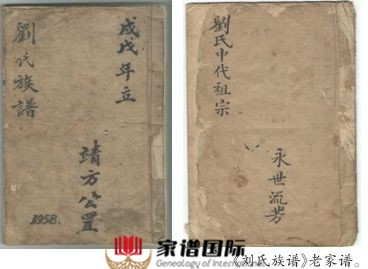 劉氏族譜
戊戌年立
靖方公置
1958.
劉氏中代祖宗
永世流芳
家谱国际
Genealogy of International
《刘氏族谱》老家谱。